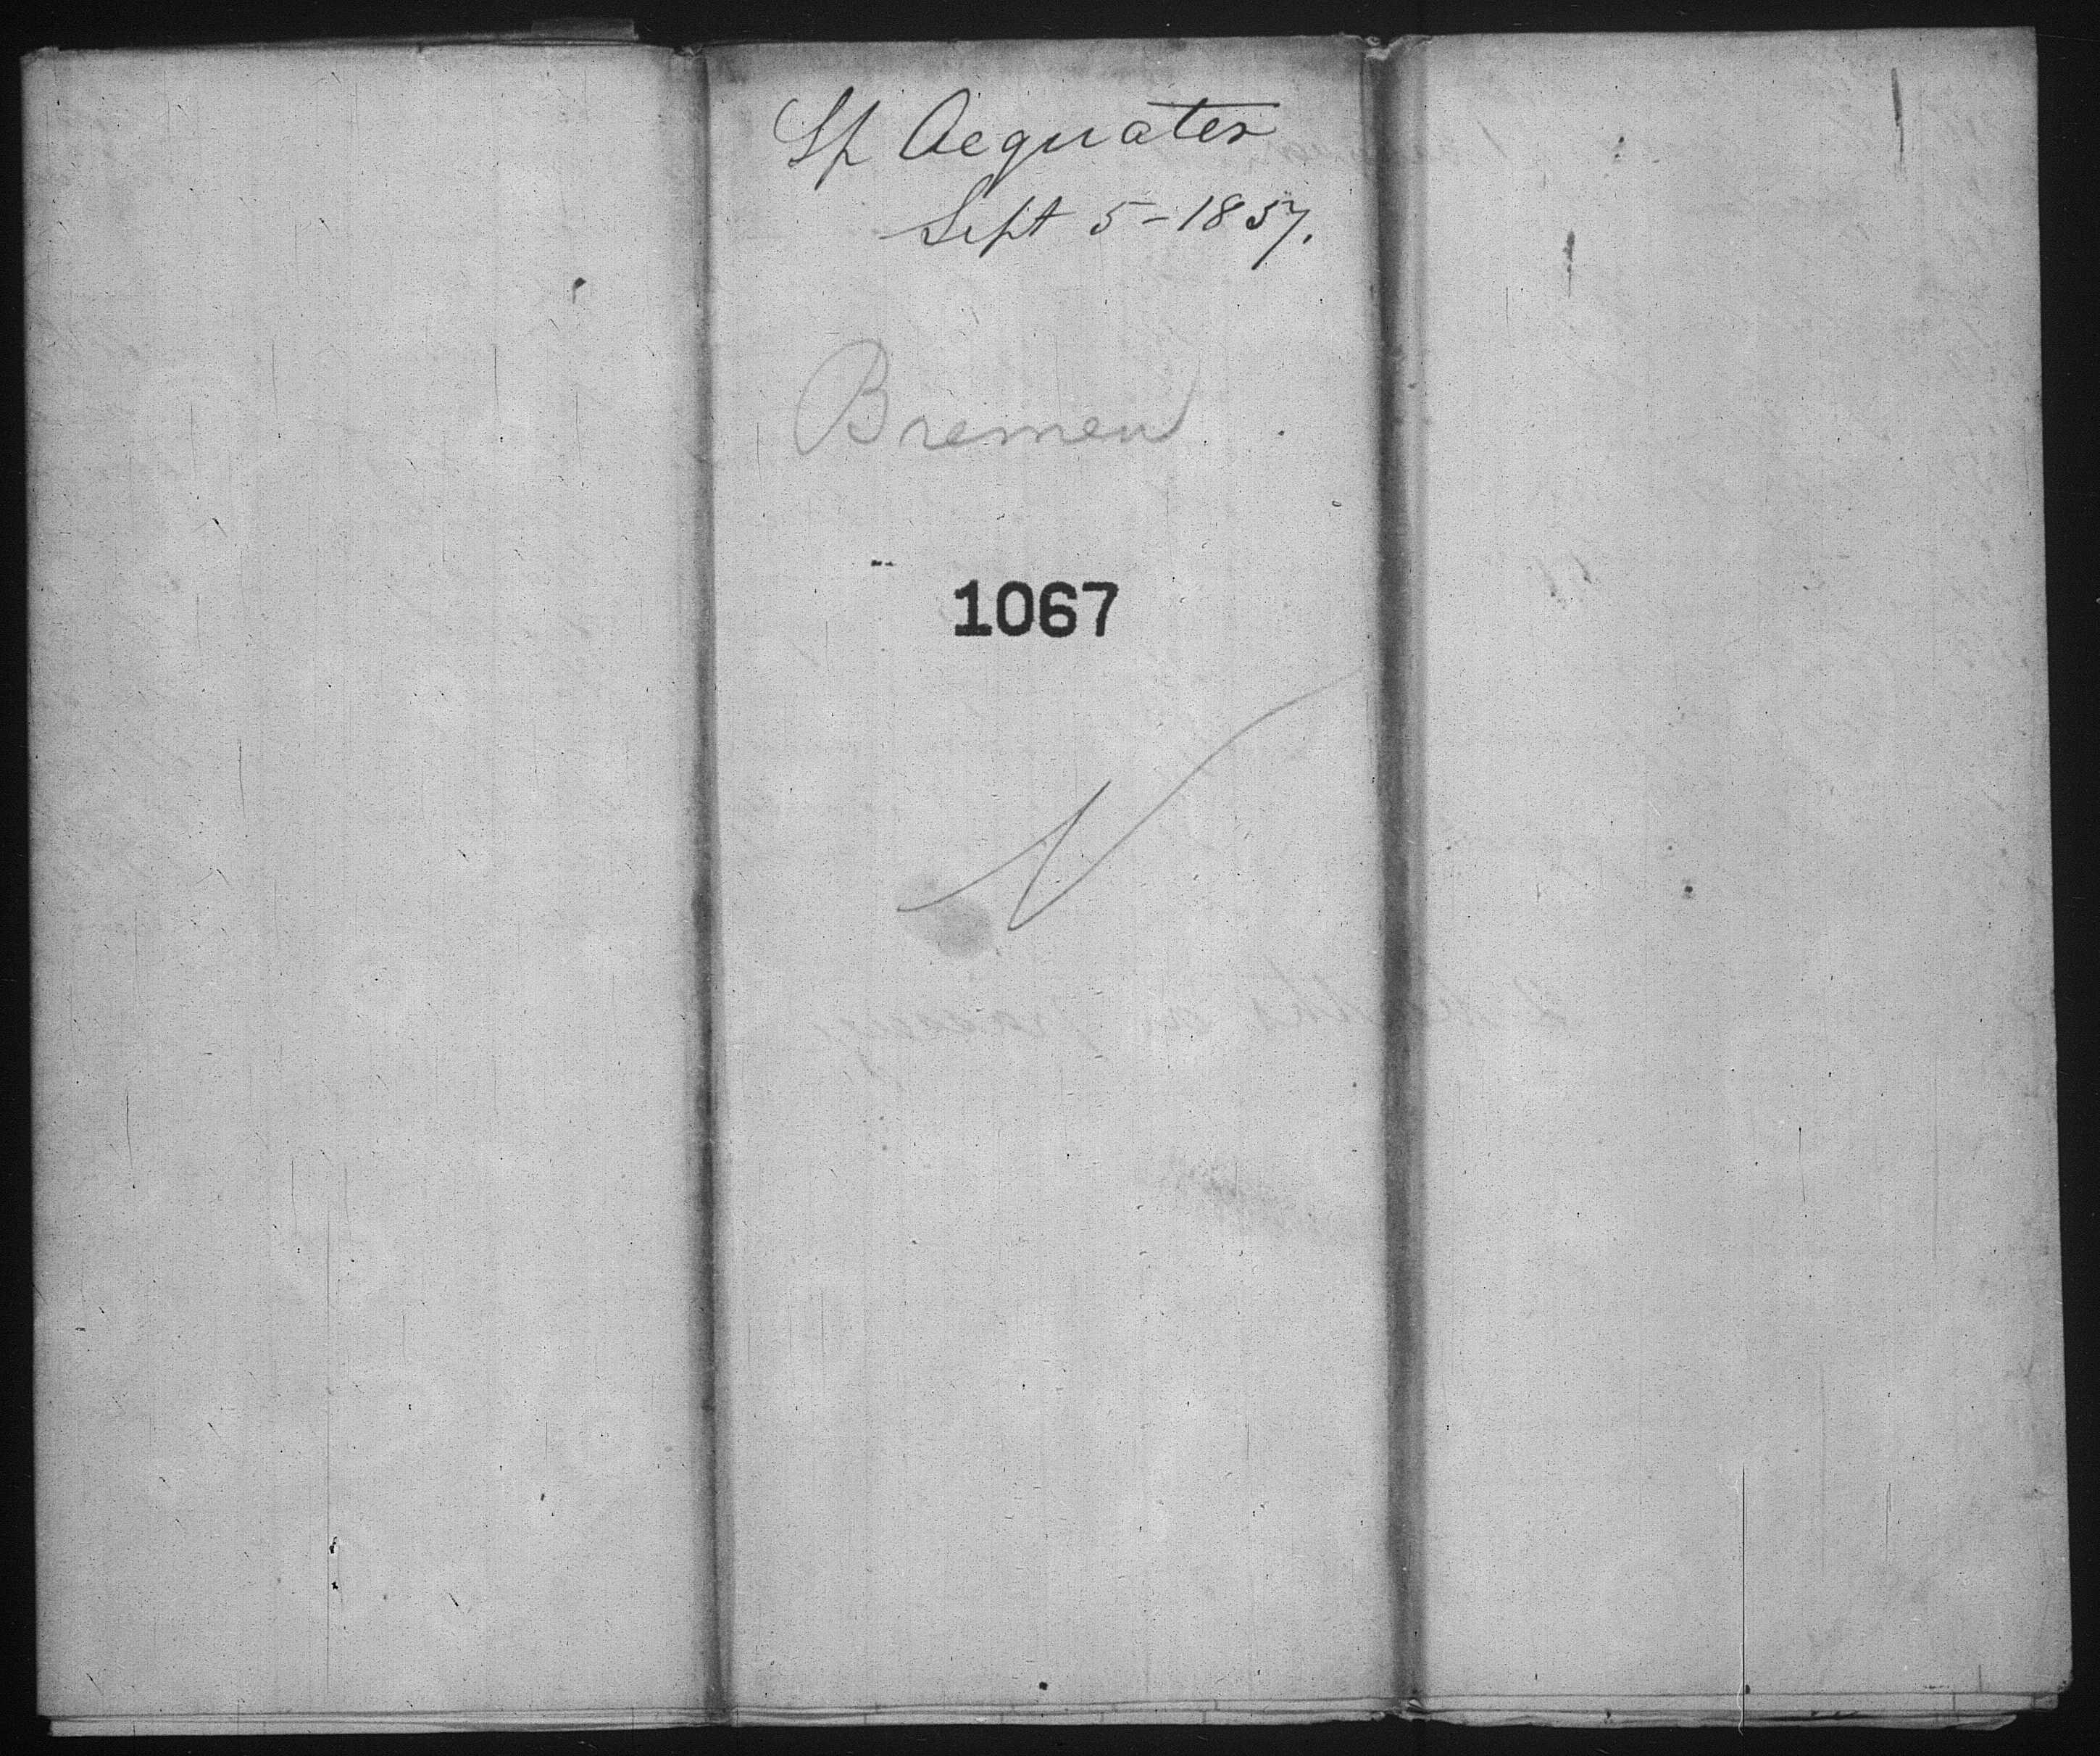 Sp Aequater
Sept 5-1857.
Bremen
1067